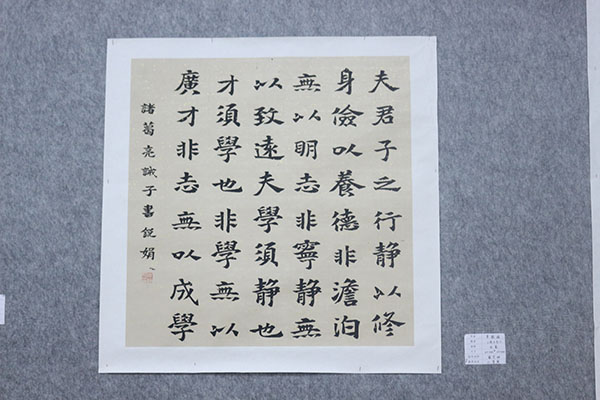 夫君子之行静以修
身儉以養德非澹泊
無以明志非寧静無
以致遠夫學須静也
才須學也非學無以
廣才非志無以成學
諸葛亮誡子書 锐娟